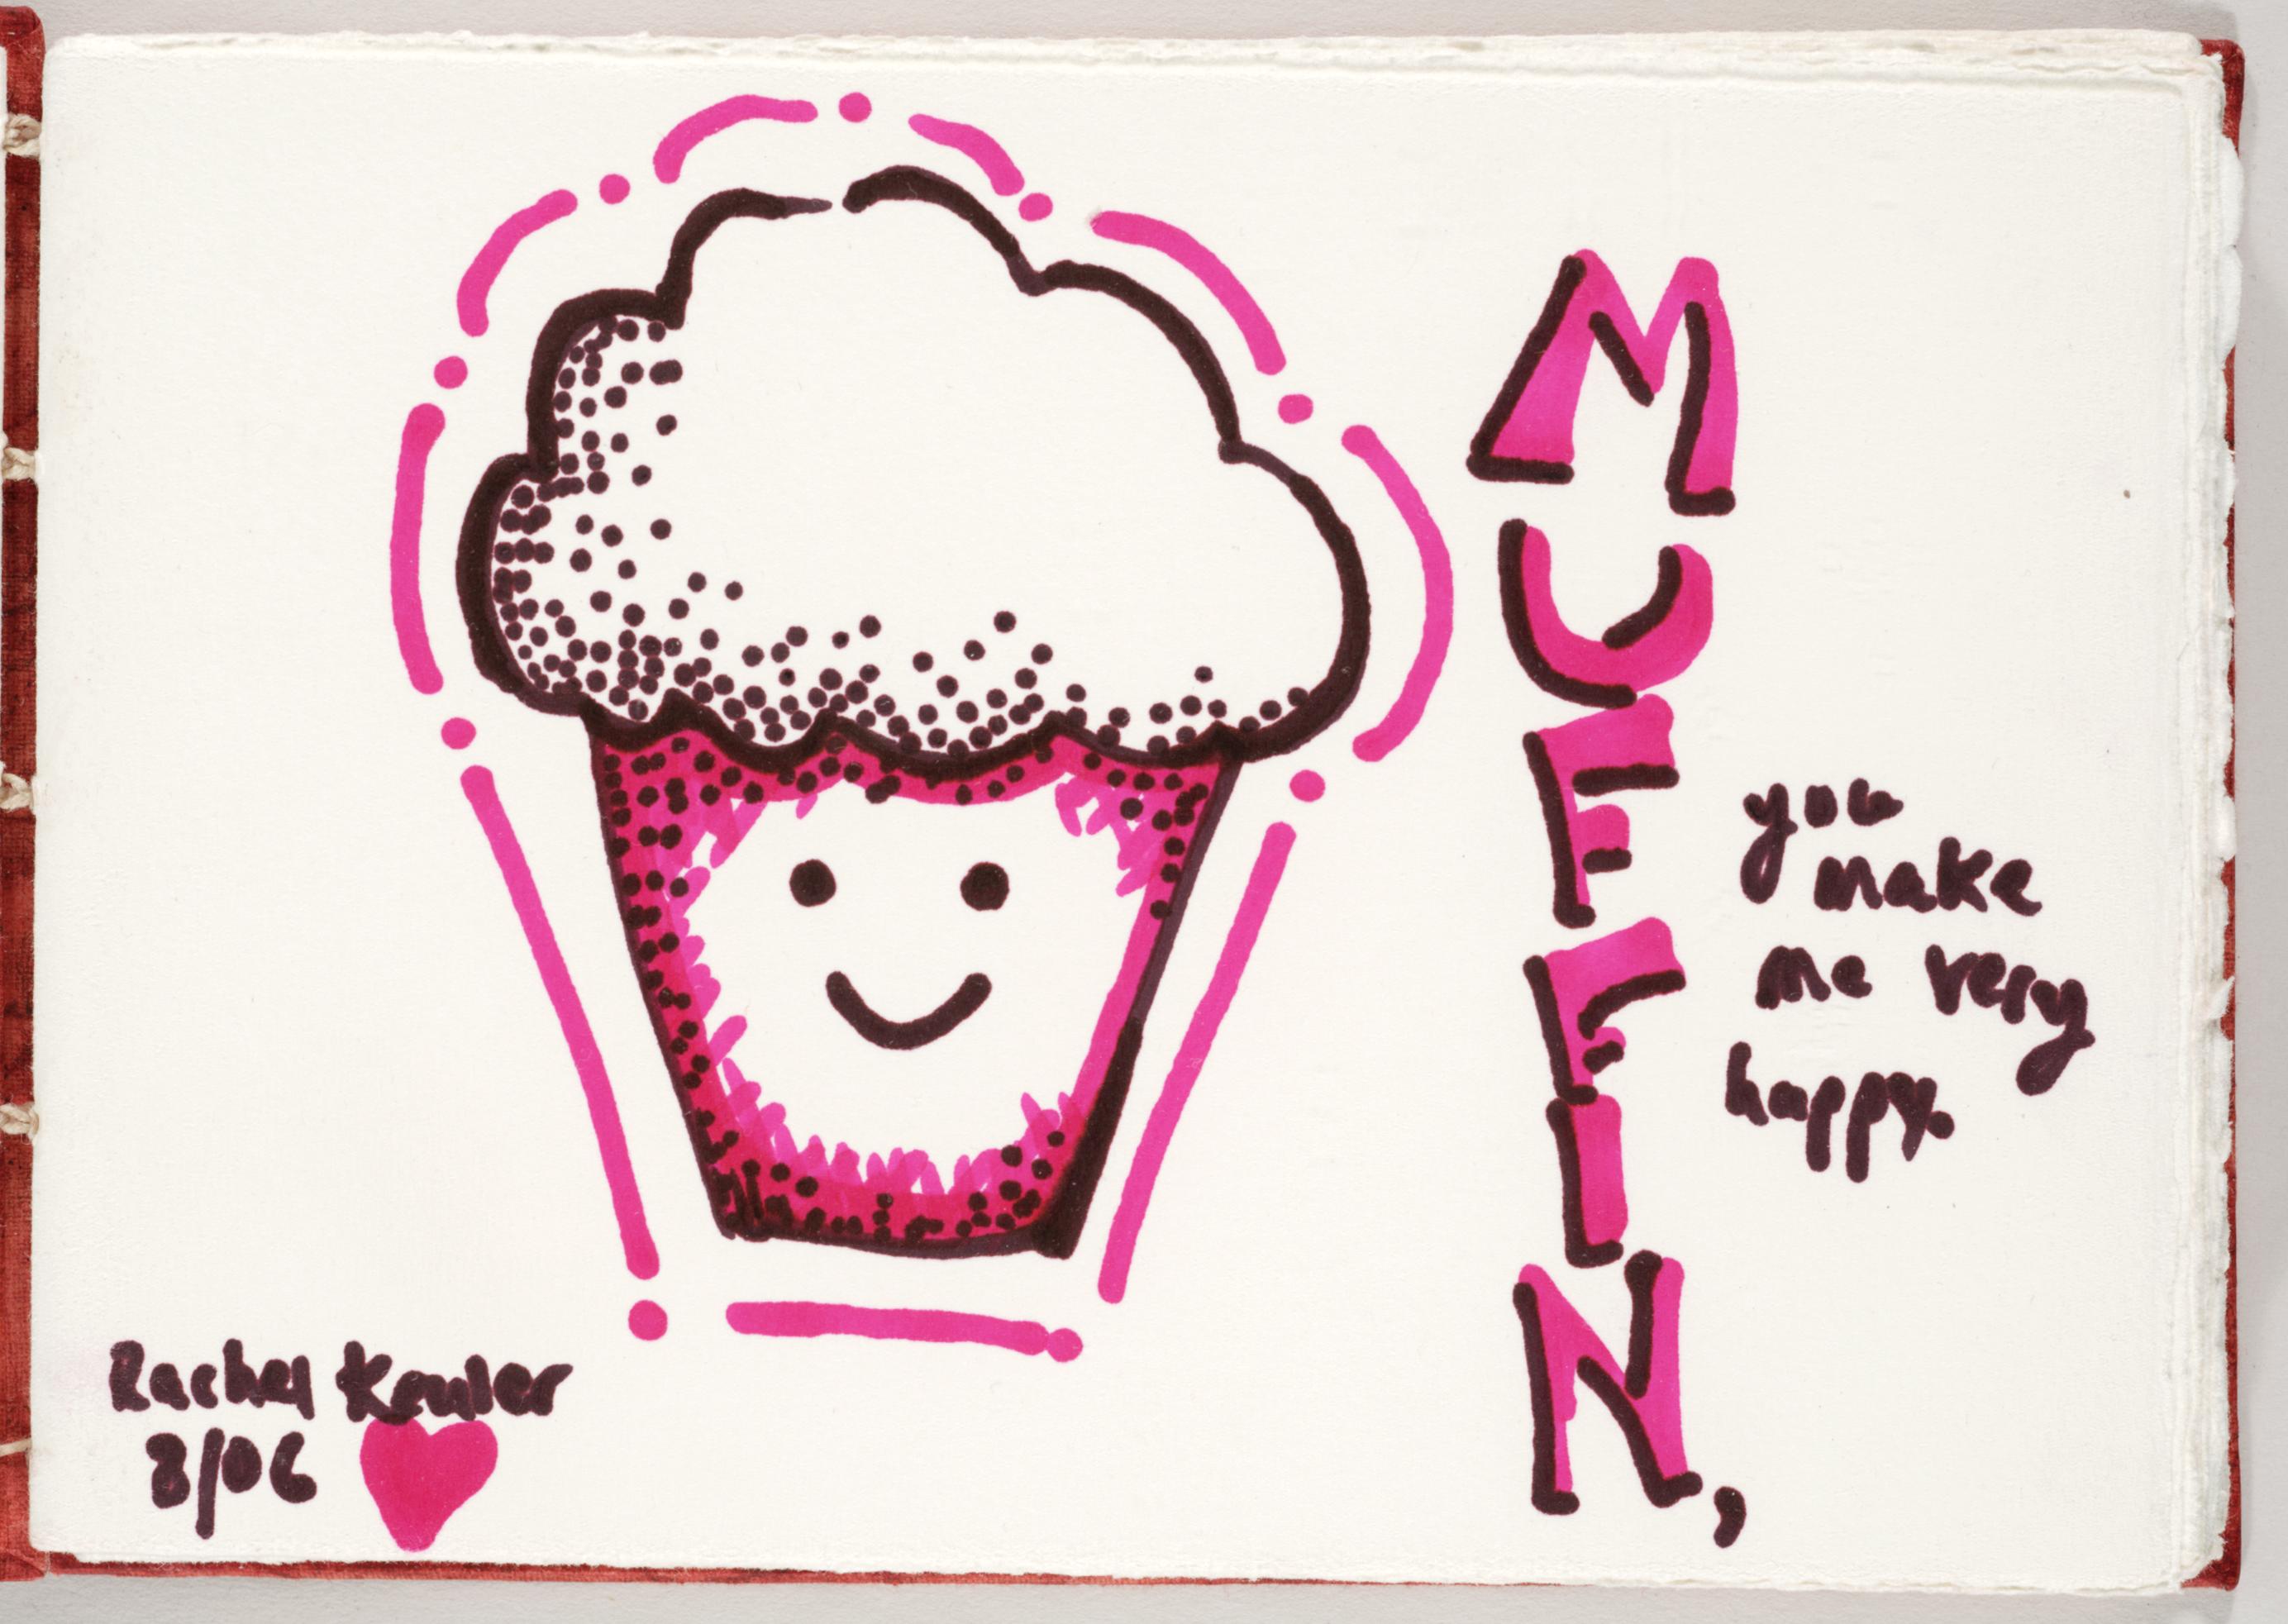 MUFFIN,
you
make
me very
happy.
Rachel
8/06